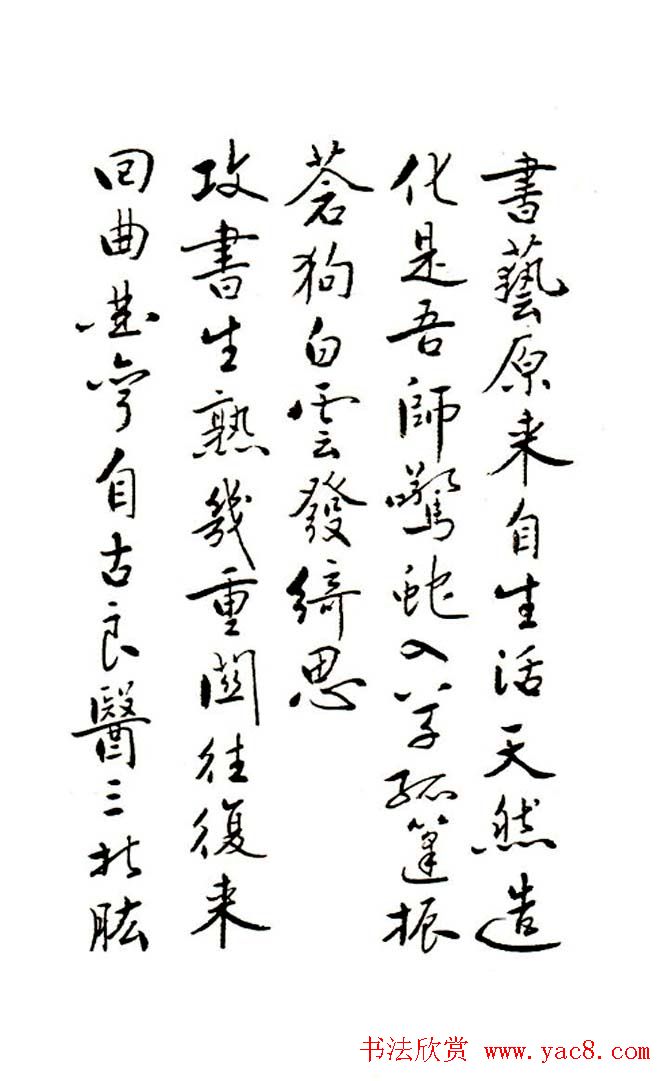 書藝原来自生活天然造
化是吾師驚蛇入草孤蓬振
蒼狗白雲發綺思
攻書生熟幾重關往復来
回曲彎自古良醫三折肱
书法欣赏 www.yac8.com